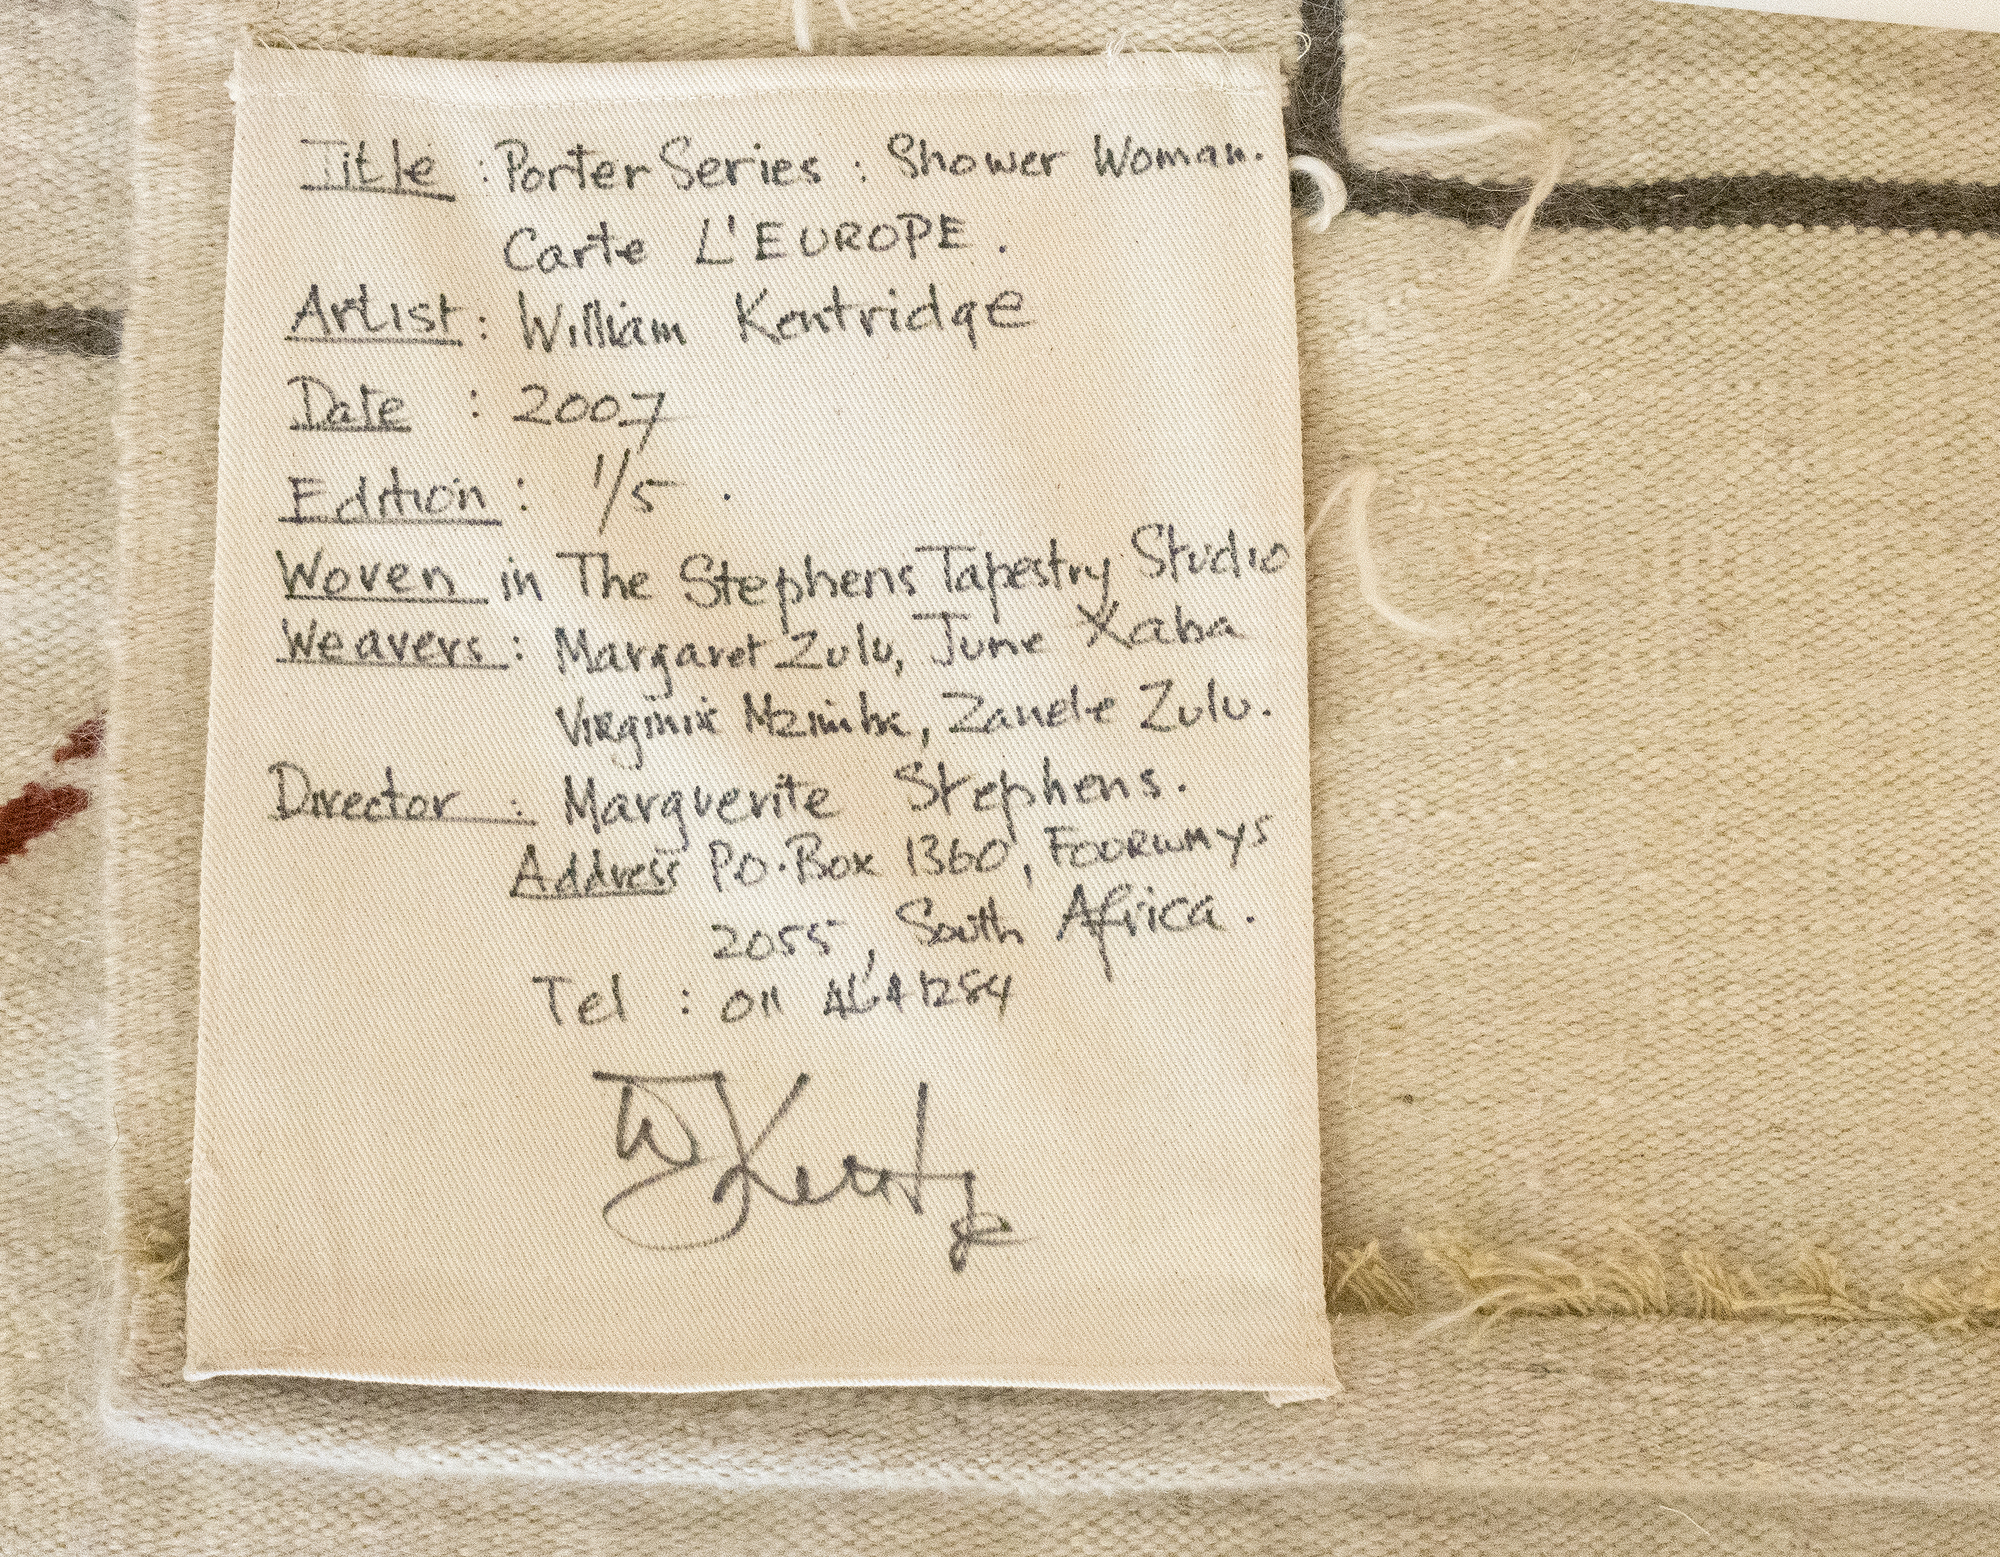 Title : Porter Series : Shower Woman.
Carte L'EUROPE.
Artist : William Kentridge
Date : 2007
Edition : 1/5 .
Woven in The Stephens Tapestry Studio
Weavers : Margaret Zulu, June Xaba
Virginia Mzimba, Zanele Zulu.
Director : Marguerite Stephens.
Address P.O. Box 1360, FOURWAYS
2055, South Africa.
Tel : 011
W Kentridge